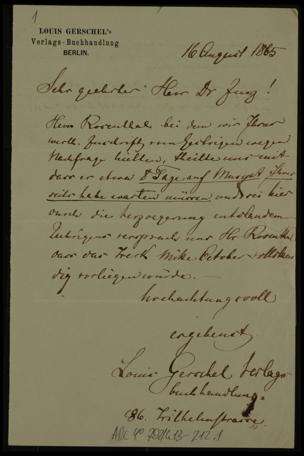 1
LOUIS GERSCHEL's
Verlags-Buchhandlung
BERLIN.
16 August 1865
Sehr geehrter Herr Dr Zunz!
Herr Rosenthal bei dem wir Ihrer
werth. Zuschrift vom Gestrigen wegen
Nachfrage hielten, theilte uns mit
dass er etwa 8 Tage auf Manuscpt Ihrer
seits habe warten müssen und sei hier
durch die Verzoegerung entstanden.
Uebrigens versprach uns Hr Rosenthal
dass das Werk Mitte October vollstaen
dig vorliegen würde. —
Hochachtungsvoll
ergebenst
Louis Gerschel Verlags
buchhandlung.
86. Wilhelmstrasse.
ARC 4° 792/